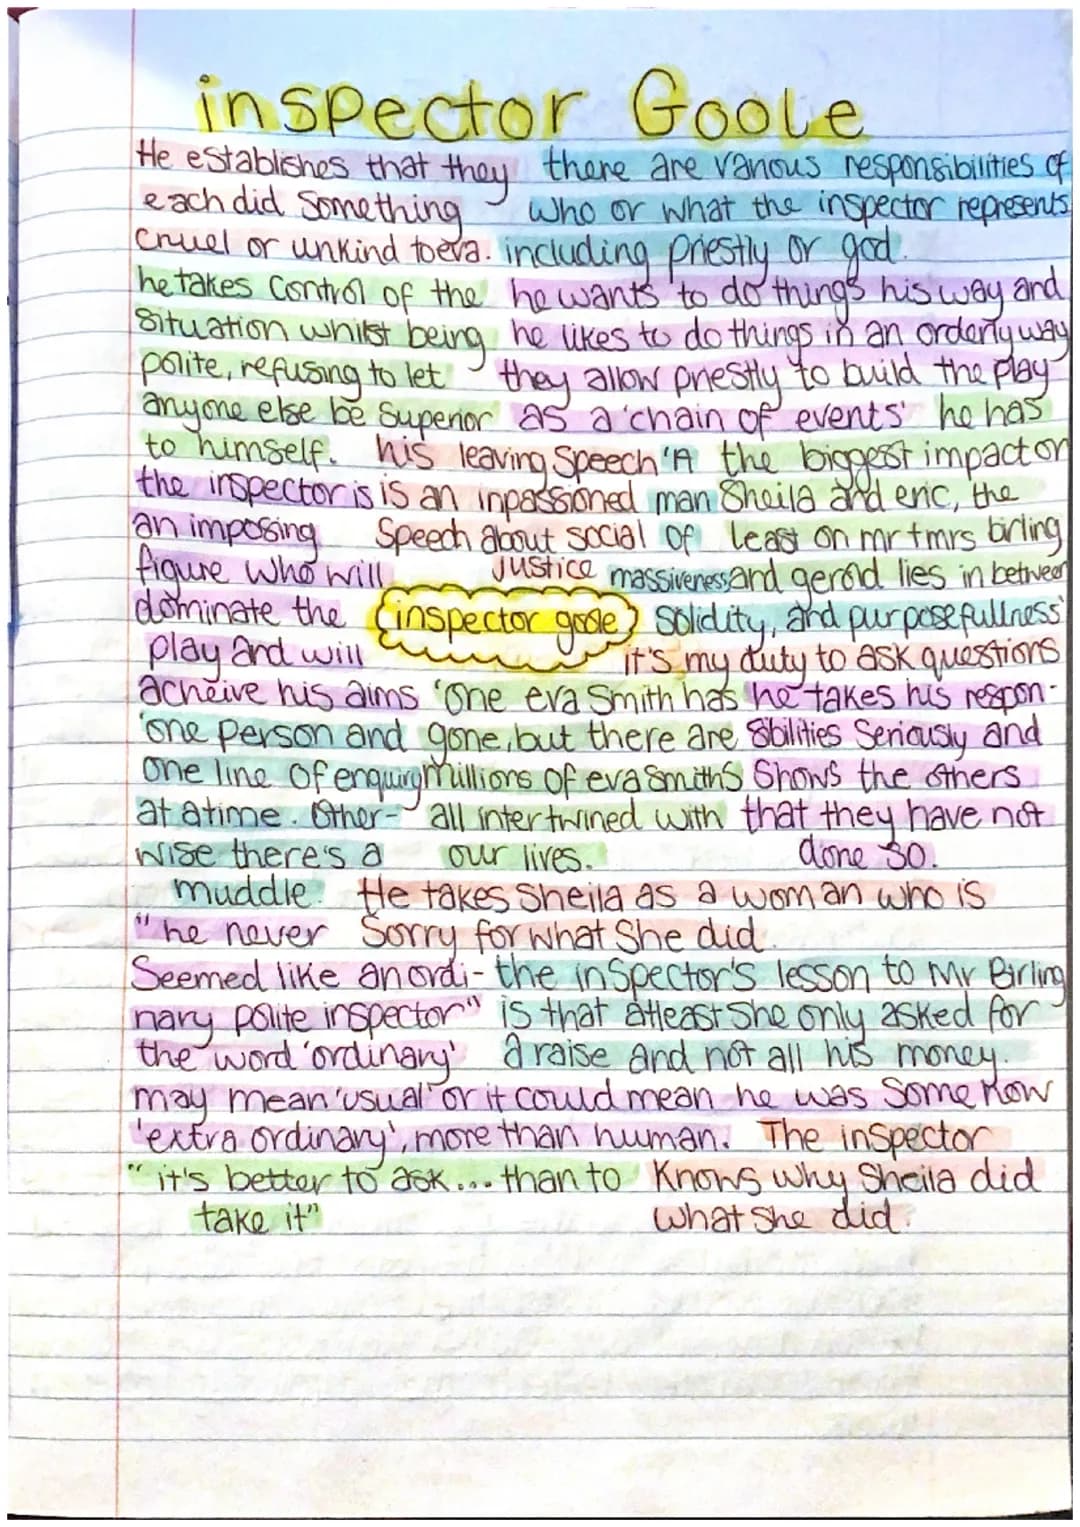 inspector Goole
He establishes that they
each did Something
cruel or unkind to eva.
there are various responsibilities of
who or what the inspector represents
including priestly or god.
he takes control of the
situation whilst being
polite, refusing to let
anyone else be superior
to himself.
he wants to do things his way and
he likes to do things in an orderly way
they allow priestly to build the play
as a 'chain of events'
he has
the biggest impact on
Sheila and eric, the
least on mr + mrs birling
and gerold lies in between
his leaving speech
is an inpassioned
Speech about social
justice
'A
man
of
massiveness
solidity, and purposefullness'
the inspector is
an imposing
figure who will
dominate the
play and will
acheive his aims
inspector goole
it's my duty to ask questions
he takes his respon-
sibilities seriously and
shows the others
that they have not
done so.
'one eva Smith has
gone, but there are
millions of eva smiths
all intertwined with
our lives.
'one person and
one line of enquiry
at a time. Other-
wise there's a
muddle.
He takes Sheila as a woman who is
Sorry for what she did.
"he never
Seemed like an ordi-
nary polite inspector"
the word 'ordinary'
may mean 'usual' or it could mean he was some how
'extra ordinary', more than human.
the inspector's lesson to Mr Birling
is that atleast she only asked for
a raise and not all his money.
The inspector
knows why Sheila did
what she did.
"it's better to ask... than to
take it"